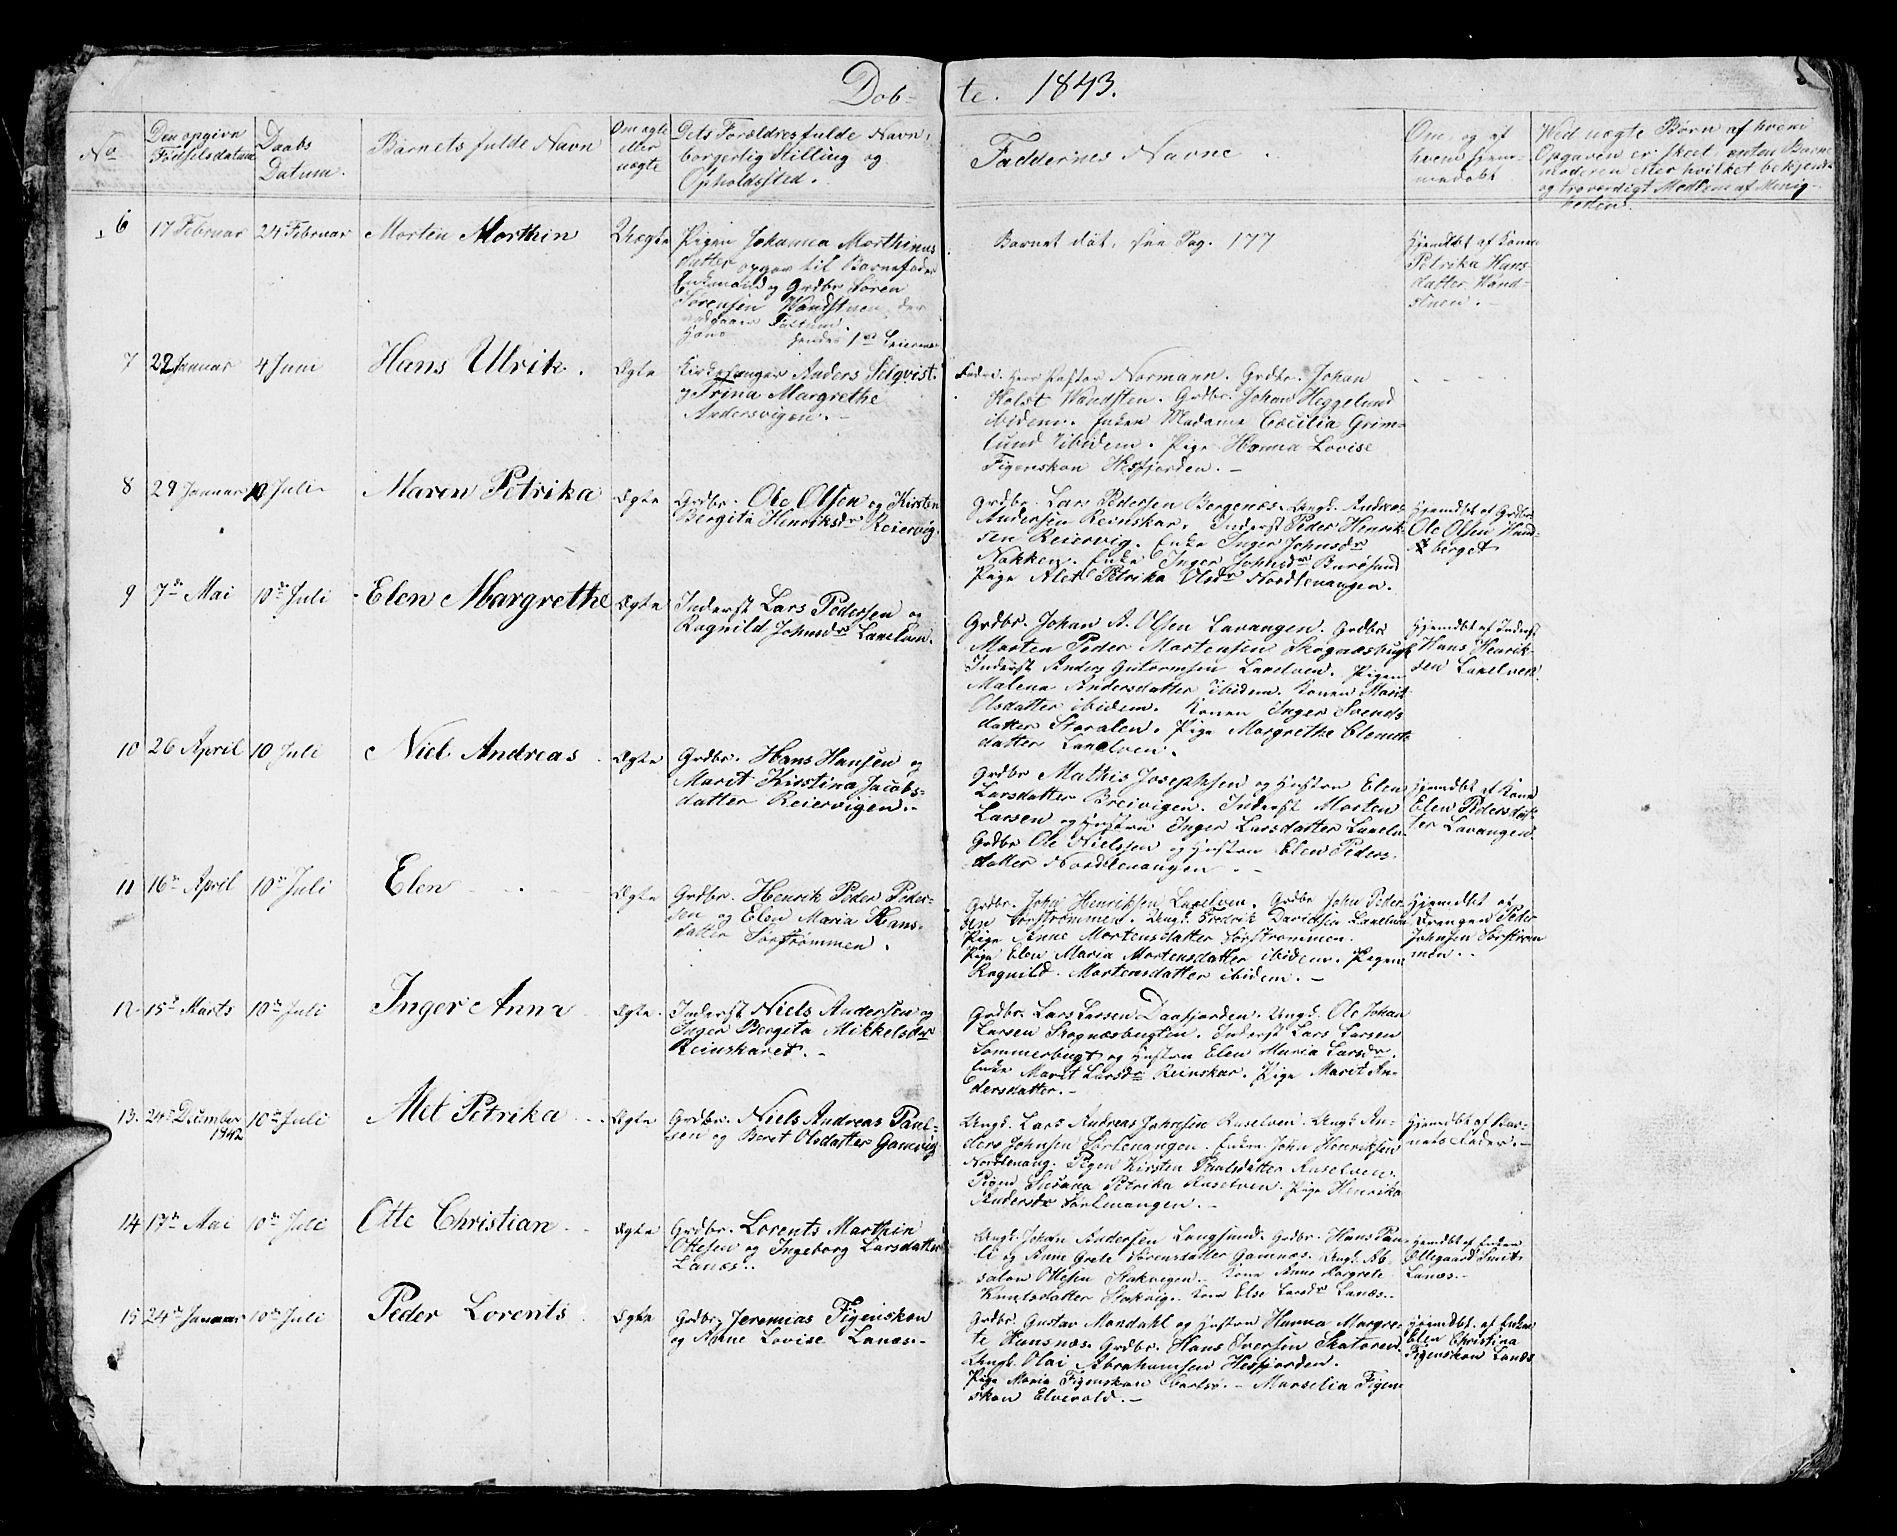 Døb- te. 1843.
No
Den opgivne
Fødselsdatum
Daabs
Datum.
Barnets fulde Navn
Om ægte
eller
uægte
Dets Forældres fulde Navn,
borgerlig Stilling og
Opholdssted.
Faddernes Navne.
Om, og af
hvem hjem-
medøbt
Ved uægte Børn af hvem
Opgaven er skeet, enten Barne
moderen eller hvilket bekjendt
og troværdigt Medlem af Menig-
heden.
6 17 Februar 24 Februar Morten Morthin Uægte
Pigen Johanna Morthinus
datter opgav til Barnefader
Enkemand og Grdbr Søren
Sørensen Vandstuen
hendes 1ste Leiermaal
Barnet død, see Pag. 177
Hjemdøbt af Konen
Petrika Hans-
datter Vand-
stuen.
7 22 Januar 4 Juni Hans Ulrik. Ægte
Kirkesanger Anders Selqvist
og Trina Margrethe
Andersvigen.
Herr Pastor Normann. Grdbr. Johan
Holst Vandsten. Grdbr. Johan Heggelund
ibidem. Enken Madame Cæcilia Grim-
lund ibidem. Pige Hanna Lovise
Figenskou Hessfjorden.
8 29 Januar 10 Juli Maren Petrika Ægte
Grdbr. Ole Olsen og Kirsten
Bergita Henriksdr Reiervig.
Grdbr. Lars Pedersen Bergenæs. Ungk. Andreas
Andersen Reinskar. Inderst Peder Henrik-
sen Reiervig. Enke Inger Johnsdr
Nakken. Enke Inger Johnsdr Burøsund
Pige Alet Petrika Olsdr Nordlenangen.
Hjemdøbt af Grdbr
Ole Olsen Ham-
berget
9 7de Mai 10de Juli Elen Margrethe Ægte
Inderst Lars Pedersen og
Ragnild Johnsdr Lanelven.
Grdbr. Johan A. Olsen Lavangen. Grdbr
Morten Peder Mortensen Skognæsbugt
Inderst Anders Gutormsen Lanelven. Pigen
Malena Andersdatter ibidem. Konen Marit
Olsdatter ibidem. Konen Inger Svends-
datter Storalen. Pige Margrethe Clemet-
datter Lanelven.
Hjemdøbt af Inderst
Hans Henrik-
sen Lanelven.
10 26 April 10 Juli Niel Andreas Ægte
Grdbr. Hans Hansen og
Marit Kirstina Jacobs-
datter Reiervigen.
Grdbr Mathis Josephsen og Hustru Elen
Larsdatter Breivigen. Inderst Morten
Larsen og Hustru Inger Larsdatter Lanelv.
Grdbr Ole Nielsen og Hustru Elen Peders-
datter Nordlenangen.
Hjemdøbt af Kone
Elen Pedersdat-
ter Lavangen
11 16de April 10de Juli Elen Ægte
Grdbr. Henrik Peder Peder-
sen og Elen Maria Hans-
datter Sørstrømmen.
Grdbr. John Henriksen Lanelven. Grdbr John Peder-
sen Sørstrømmen. Ungk. Fredrik Davidsen Lanelven
Pige Anne Mortensdatter Sørstrømmen.
Pige Elen Maria Mortensdatter ibidem. Pigen
Ragnild Mortensdatter ibidem.
Hjemdøbt af
Drengen Peder
Johnsen Sørstrøm-
men.
12 15de Marts 10de Juli Inger Anna Ægte.
Inderst Niels Andersen og
Inger Bergita Mikkelsdr
Reinskaret.
Grdbr. Lars Larsen Daafjorden. Ungk. Ole Johan
Larsen Skognæsbugten. Inderst Lars Larsen
Sommerbugt og Hustru Elen Maria Larsdr.
Enke Marit Larsdr Reinskar. Pige Marit An-
dersdatter.
13. 24de December 1842 10de Juli Alet Petrika Ægte
Grdbr. Niels Andreas Paul-
sen og Beret Olsdatter Gamvig
Ungk. Lars Andreas Johnsen Kaselven. Ungk. An-
ders Johnsen Sørlenangen. Enken John Henriksen
Nordlenang. Pigen Kirsten Paulsdatter Kaselven.
Pigen Susana Petrika Kaselven. Pige Henrika
Andersdr Sørlenangen.
Hjemdøbt af Bar-
nets Fader.
14 17de Mai 10de Juli Otte Christian Ægte
Grdbr. Lorents Marthin
Ottesen og Ingeborg Larsdatter
Lanæs.
Ungk. Johan Andersen Langsund. Grdbr. Hans Pau-
li og Anne Grete Sørensdatter Gamnæs. Ungk. Ab-
salon Ottesen Stakvigen. Kone Anne Margrete
Knutsdatter Stakvig. Kone Else Larsdr Lanæs.
Hjemdøbt af Enken
Ollegaard Smit
Lanæs.
15 24de Januar 10de Juli Peder Lorents Ægte
Grdbr. Jeremias Figenskou
og Anne Lovise Lanæs.
Grdbr. Gustav Mandahl og Hustru Hanna Margre-
te Hansnæs. Grdbr. Hans Iversen Skatøren.
Ungk. Olai Abrahamsen Hessfjorden.
Pige Maria Figenskou. Marselia Figen-
skou Elvevold.
Hjemdøbt af Enken
Elen Christina
Figenskou Lanæs